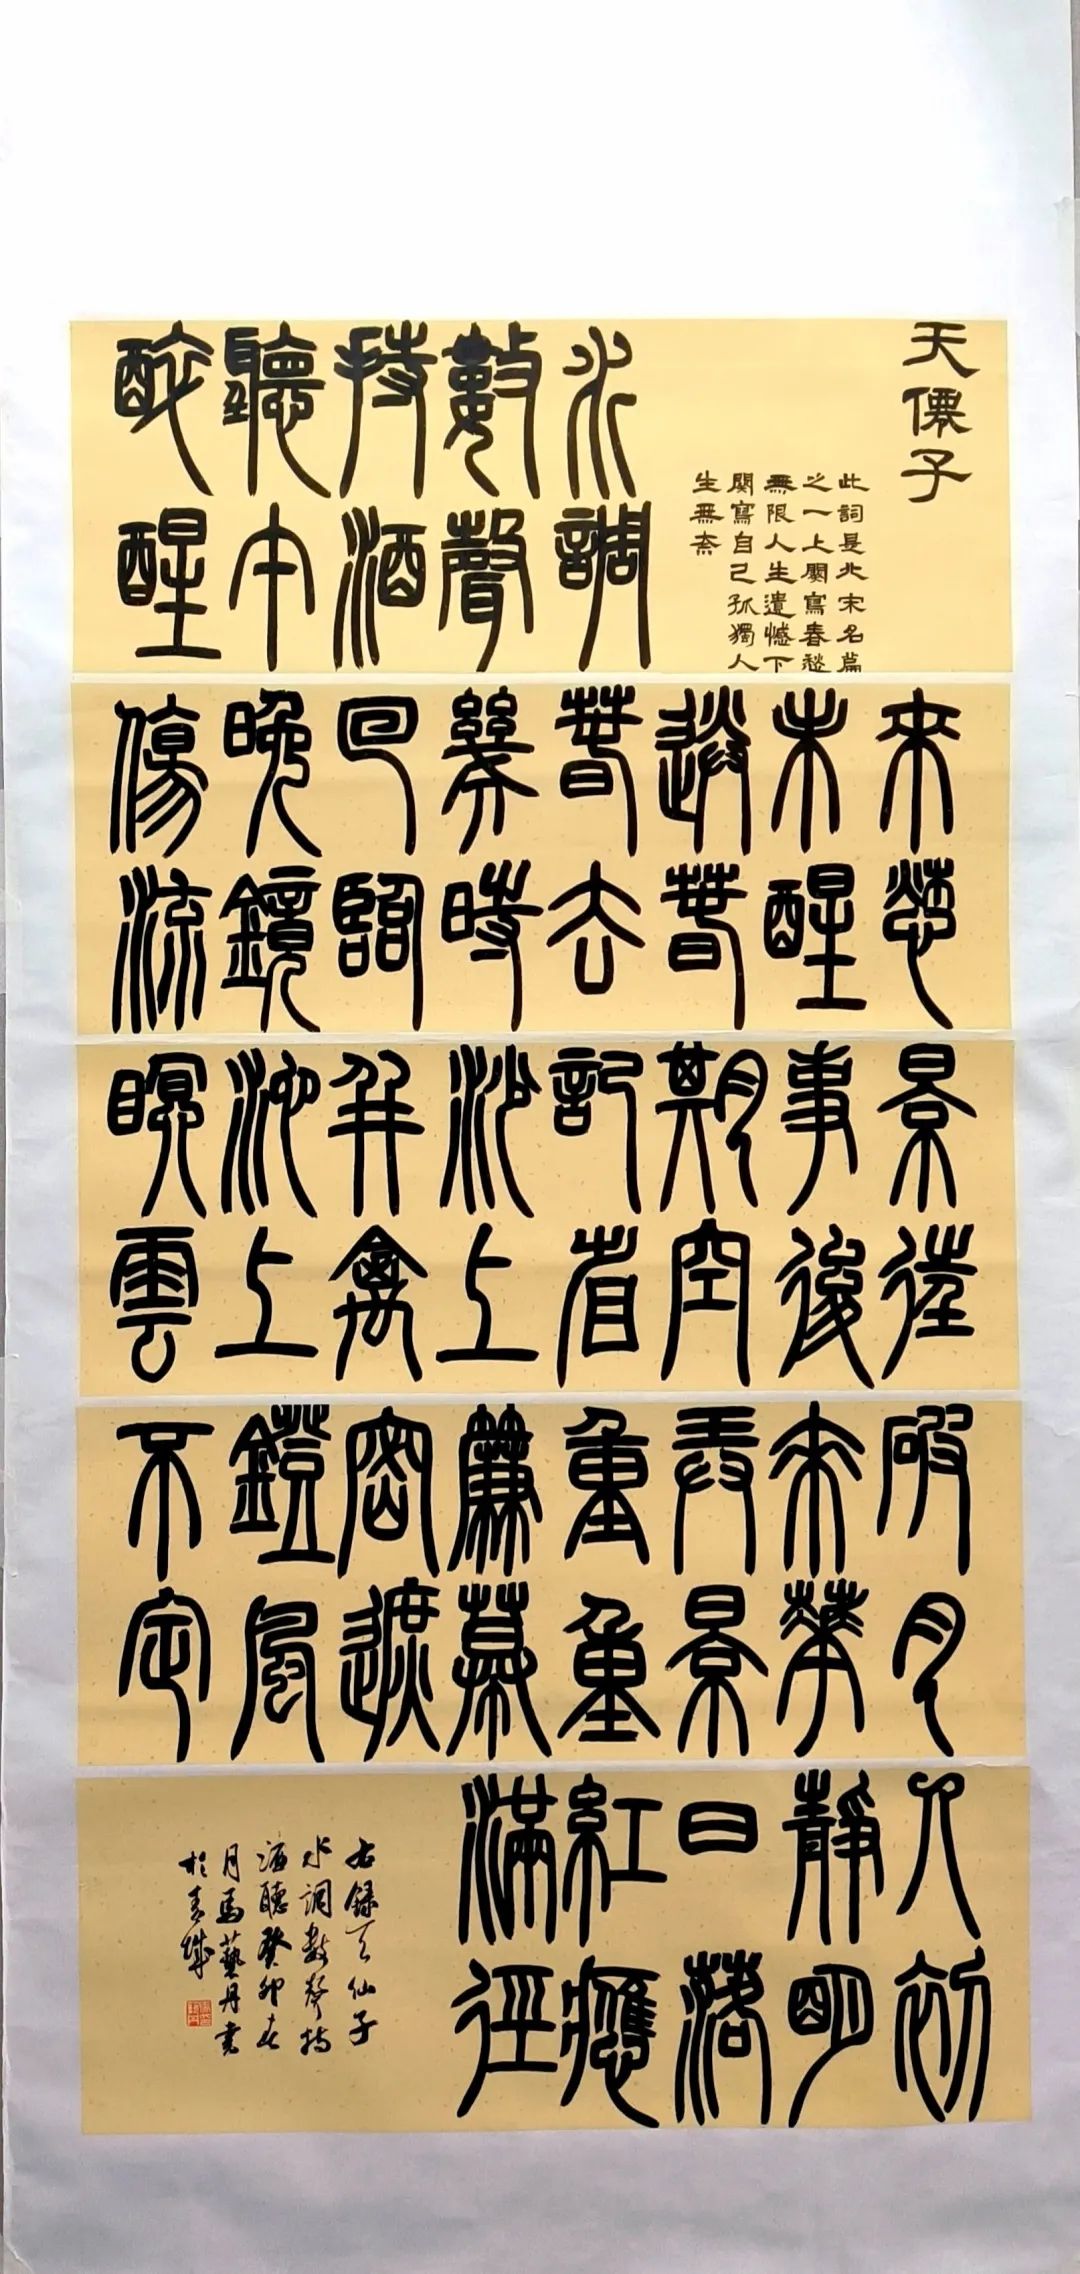 天僊子
此詞是北宋名篇
之一上闋寫春愁
無限人生遺憾下
闋寫自己孤獨人
生無奈
水調
數聲
持酒
聽午
醉醒
來愁
未醒
送春
春去
幾時
回臨
晚鏡
傷流
景往
事後
期空
記省
沙上
并禽
池上
暝雲
破月
來華
弄景
重重
簾幕
密遮
鐙風
不定
人初
靜明
日落
紅應
滿徑
右錄天仙子
水調數聲持
酒聽癸卯春
月馬藝丹書
於青城